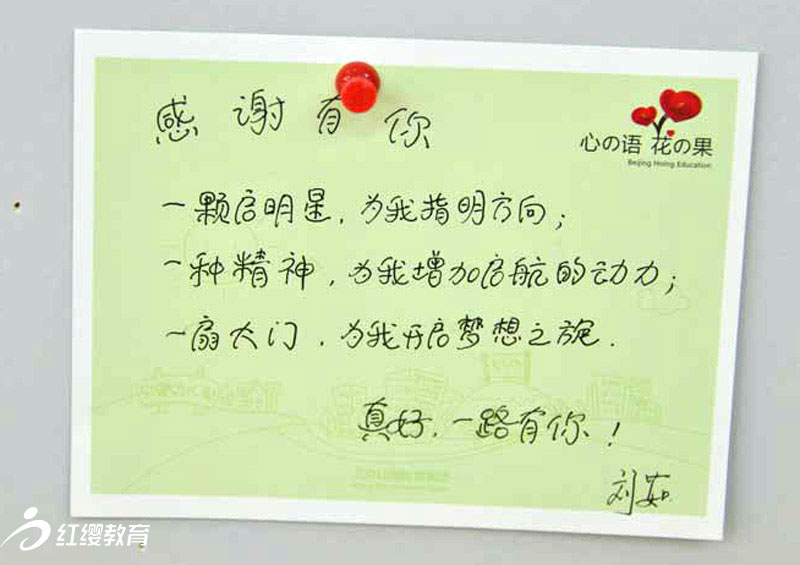 感谢有你
心の语 花の果
Beijing Hoing Education
一颗启明星，为我指明方向；
一种精神，为我增加启航的动力；
一扇大门，为我开启梦想之旅.
真好，一路有你！
刘茹
红缨教育